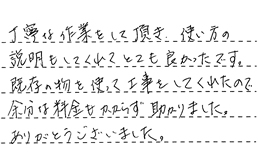 丁寧な作業をして頂き、使い方の
説明もしてくれてとても良かったです。
既存の物を使って工事をしてくれたので
余分な料金もかからず助かりました。
ありがとうございました。